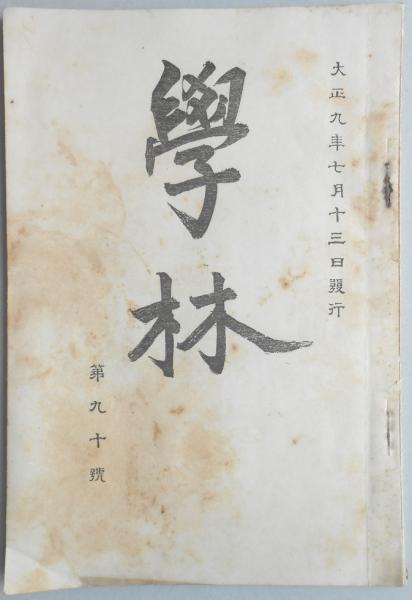 大正九年七月十三日發行
學林
第九十號